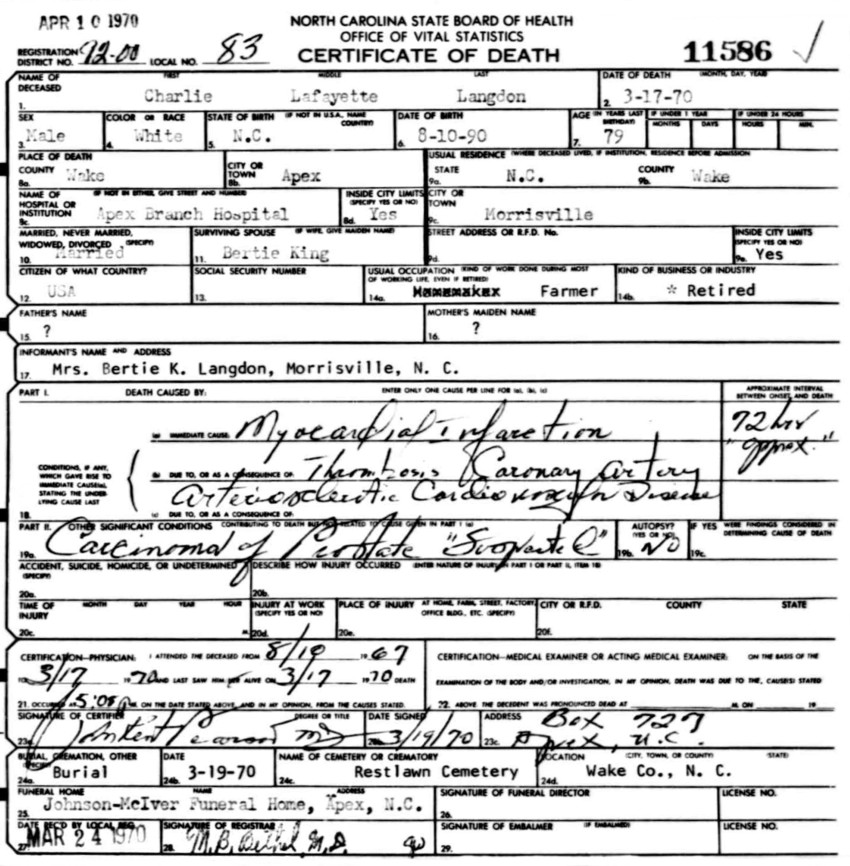 APR 10 1970
NORTH CAROLINA STATE BOARD OF HEALTH
OFFICE OF VITAL STATISTICS
REGISTRATION DISTRICT NO. 92-00 LOCAL NO. 83 CERTIFICATE OF DEATH 11586 ✓
NAME OF DECEASED FIRST MIDDLE LAST DATE OF DEATH (MONTH, DAY, YEAR)
1. Charlie Lafayette Langdon 2. 3-17-70
SEX COLOR OR RACE STATE OF BIRTH (IF NOT IN U.S.A. NAME COUNTRY) DATE OF BIRTH AGE (IN YEARS LAST BIRTHDAY) IF UNDER 1 YEAR IF UNDER 24 HOURS
MONTHS DAYS HOURS MIN.
3. Male 4. White 5. N.C. 6. 8-10-90 7. 79
PLACE OF DEATH USUAL RESIDENCE (WHERE DECEASED LIVED, IF INSTITUTION, RESIDENCE BEFORE ADMISSION
COUNTY Wake CITY OR TOWN Apex STATE N.C. COUNTY Wake
8a. 8b. 9a. 9b.
NAME OF HOSPITAL OR INSTITUTION (IF NOT IN EITHER, GIVE STREET AND NUMBER) INSIDE CITY LIMITS (SPECIFY YES OR NO) CITY OR TOWN
8c. Apex Branch Hospital 8d. Yes 9c. Morrisville
MARRIED, NEVER MARRIED, WIDOWED, DIVORCED (SPECIFY) SURVIVING SPOUSE (IF WIFE, GIVE MAIDEN NAME) STREET ADDRESS OR R.F.D. No. INSIDE CITY LIMITS (SPECIFY YES OR NO)
10. Married 11. Bertie King 9d. 9e. Yes
CITIZEN OF WHAT COUNTRY? SOCIAL SECURITY NUMBER USUAL OCCUPATION (KIND OF WORK DONE DURING MOST OF WORKING LIFE, EVEN IF RETIRED) KIND OF BUSINESS OR INDUSTRY
12. USA 13. 14a. Farmer 14b. * Retired
FATHER'S NAME MOTHER'S MAIDEN NAME
15. ? 16. ?
INFORMANT'S NAME AND ADDRESS
17. Mrs. Bertie K. Langdon, Morrisville, N. C.
PART I. DEATH CAUSED BY: ENTER ONLY ONE CAUSE PER LINE FOR (a), (b), (c) APPROXIMATE INTERVAL BETWEEN ONSET AND DEATH
(a) IMMEDIATE CAUSE: Myocardial Infarction 72 hrs "approx."
CONDITIONS, IF ANY, WHICH GAVE RISE TO IMMEDIATE CAUSE(a), STATING THE UNDERLYING CAUSE LAST
(b) DUE TO, OR AS A CONSEQUENCE OF: Thrombosis Coronary Artery
Arteriosclerotic Cardiovascular Disease
18. (c) DUE TO, OR AS A CONSEQUENCE OF:
PART II. OTHER SIGNIFICANT CONDITIONS CONTRIBUTING TO DEATH BUT NOT RELATED TO CAUSE GIVEN IN PART I (a) AUTOPSY? (YES OR NO) IF YES WERE FINDINGS CONSIDERED IN DETERMINING CAUSE OF DEATH
19a. Carcinoma of Prostate 19b. No 19c.
ACCIDENT, SUICIDE, HOMICIDE, OR UNDETERMINED (SPECIFY) DESCRIBE HOW INJURY OCCURRED (ENTER NATURE OF INJURY IN PART I OR PART II, ITEM 18)
20a. 20b.
TIME OF INJURY MONTH DAY YEAR HOUR INJURY AT WORK (SPECIFY YES OR NO) PLACE OF INJURY AT HOME, FARM, STREET, FACTORY, OFFICE BLDG., ETC. (SPECIFY) CITY OR R.F.D. COUNTY STATE
20c. M. 20d. 20e. 20f.
CERTIFICATION—PHYSICIAN: I ATTENDED THE DECEASED FROM 8/19 1967 CERTIFICATION—MEDICAL EXAMINER OR ACTING MEDICAL EXAMINER: ON THE BASIS OF THE
TO 3/17 1970 AND LAST SAW HIM ALIVE ON 3/17 1970 DEATH EXAMINATION OF THE BODY AND/OR INVESTIGATION, IN MY OPINION, DEATH WAS DUE TO THE, CAUSE(S) STATED
21. OCCURRED AT 5:05 M. ON THE DATE STATED ABOVE, AND IN MY OPINION, FROM THE CAUSES STATED. 22. ABOVE THE DECEDENT WAS PRONOUNCED DEAD AT M. ON 19
SIGNATURE OF CERTIFIER DEGREE OR TITLE DATE SIGNED ADDRESS Box 727
23a. Pearson MD 23b. 3/19/70 23c. Apex, N.C.
BURIAL, CREMATION, OTHER (SPECIFY) DATE NAME OF CEMETERY OR CREMATORY LOCATION (CITY, TOWN, OR COUNTY) (STATE)
24a. Burial 24b. 3-19-70 24c. Restlawn Cemetery 24d. Wake Co., N. C.
FUNERAL HOME NAME ADDRESS SIGNATURE OF FUNERAL DIRECTOR LICENSE NO.
25. Johnson-McIver Funeral Home, Apex, N.C. 26.
DATE REC'D BY LOCAL REG. SIGNATURE OF REGISTRAR SIGNATURE OF EMBALMER (IF EMBALMED) LICENSE NO.
27. MAR 24 1970 28. M. B. Bethel, M. D. 29.